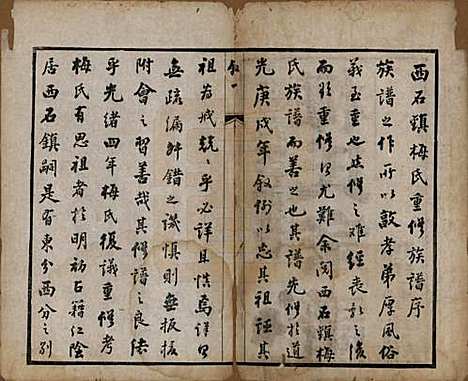 西石鎮梅氏重修族譜序
族譜之作所以敦孝弟厚風俗
義至重也然修之難經喪亂之後
而預重修得尤難余閱西石鎮梅
氏族譜而善之也其譜先修於道
光庚戌年敘例以忠其祖証其
叙一
祖為城兢兢乎必詳且慎焉詳則
無疏漏舛錯之譏慎則無扳援
附會之習善哉其修譜之良法
乎光緒四年梅氏復議重修考
梅氏有思祖者於明初占籍江陰
居西石鎮嗣是有東分西分之別